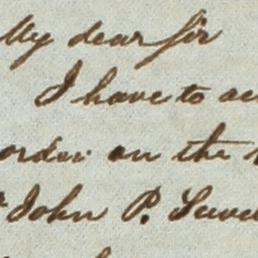 My dear Sir
I have to
order on the
John P.